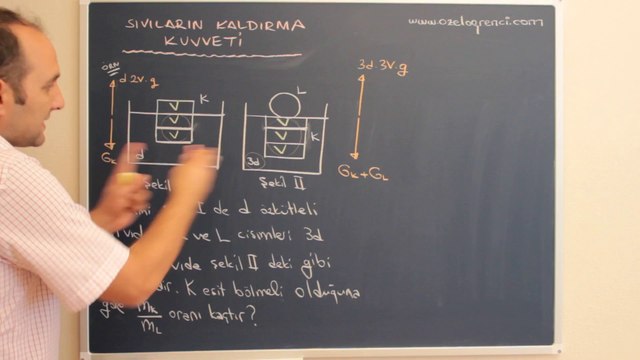 SIVILARIN KALDIRMA KUVVETİ
www.ozelogrenci.com
ÖRN
d.2V.g
K
V
V
V
d
GK
L
3d.3V.g
V
V
V
K
3d
GK+GL
Şekil
Şekil II
I de d özkütleli
ve L cisimleri 3d
şekil II deki gibi
K eşit bölmeli olduğuna
göre mK/mL oranı kaçtır?